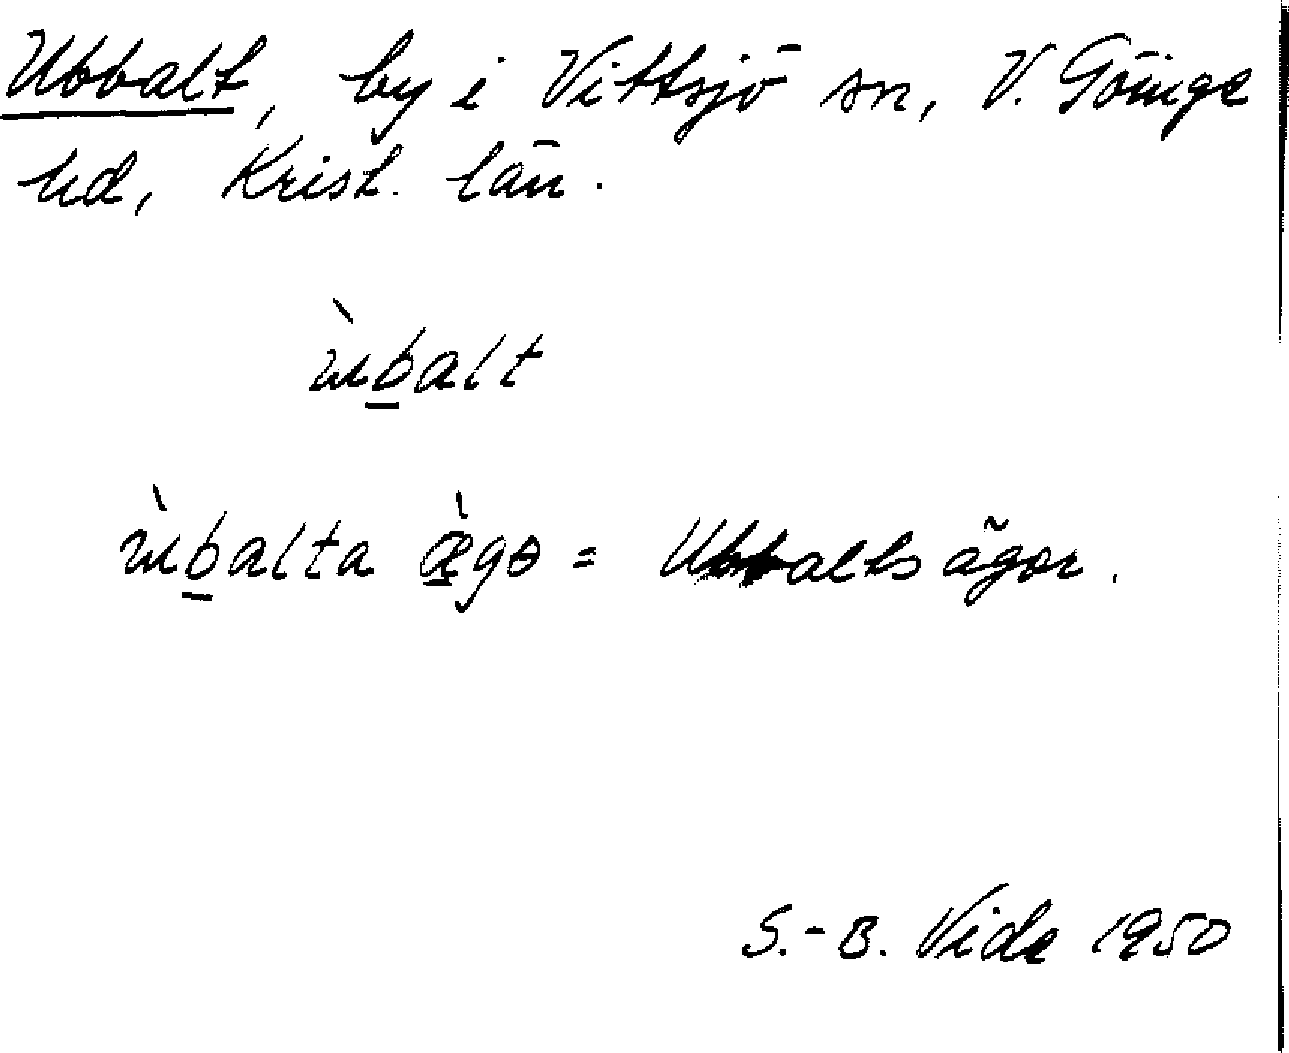 Ubbalt, by i Vittsjö sn, V. Göinge
hd, Krist. län.
ùb̲alt
ùb̲alta æ̀gɵ = Ubbaltsägor.
S.-B. Vide 1950